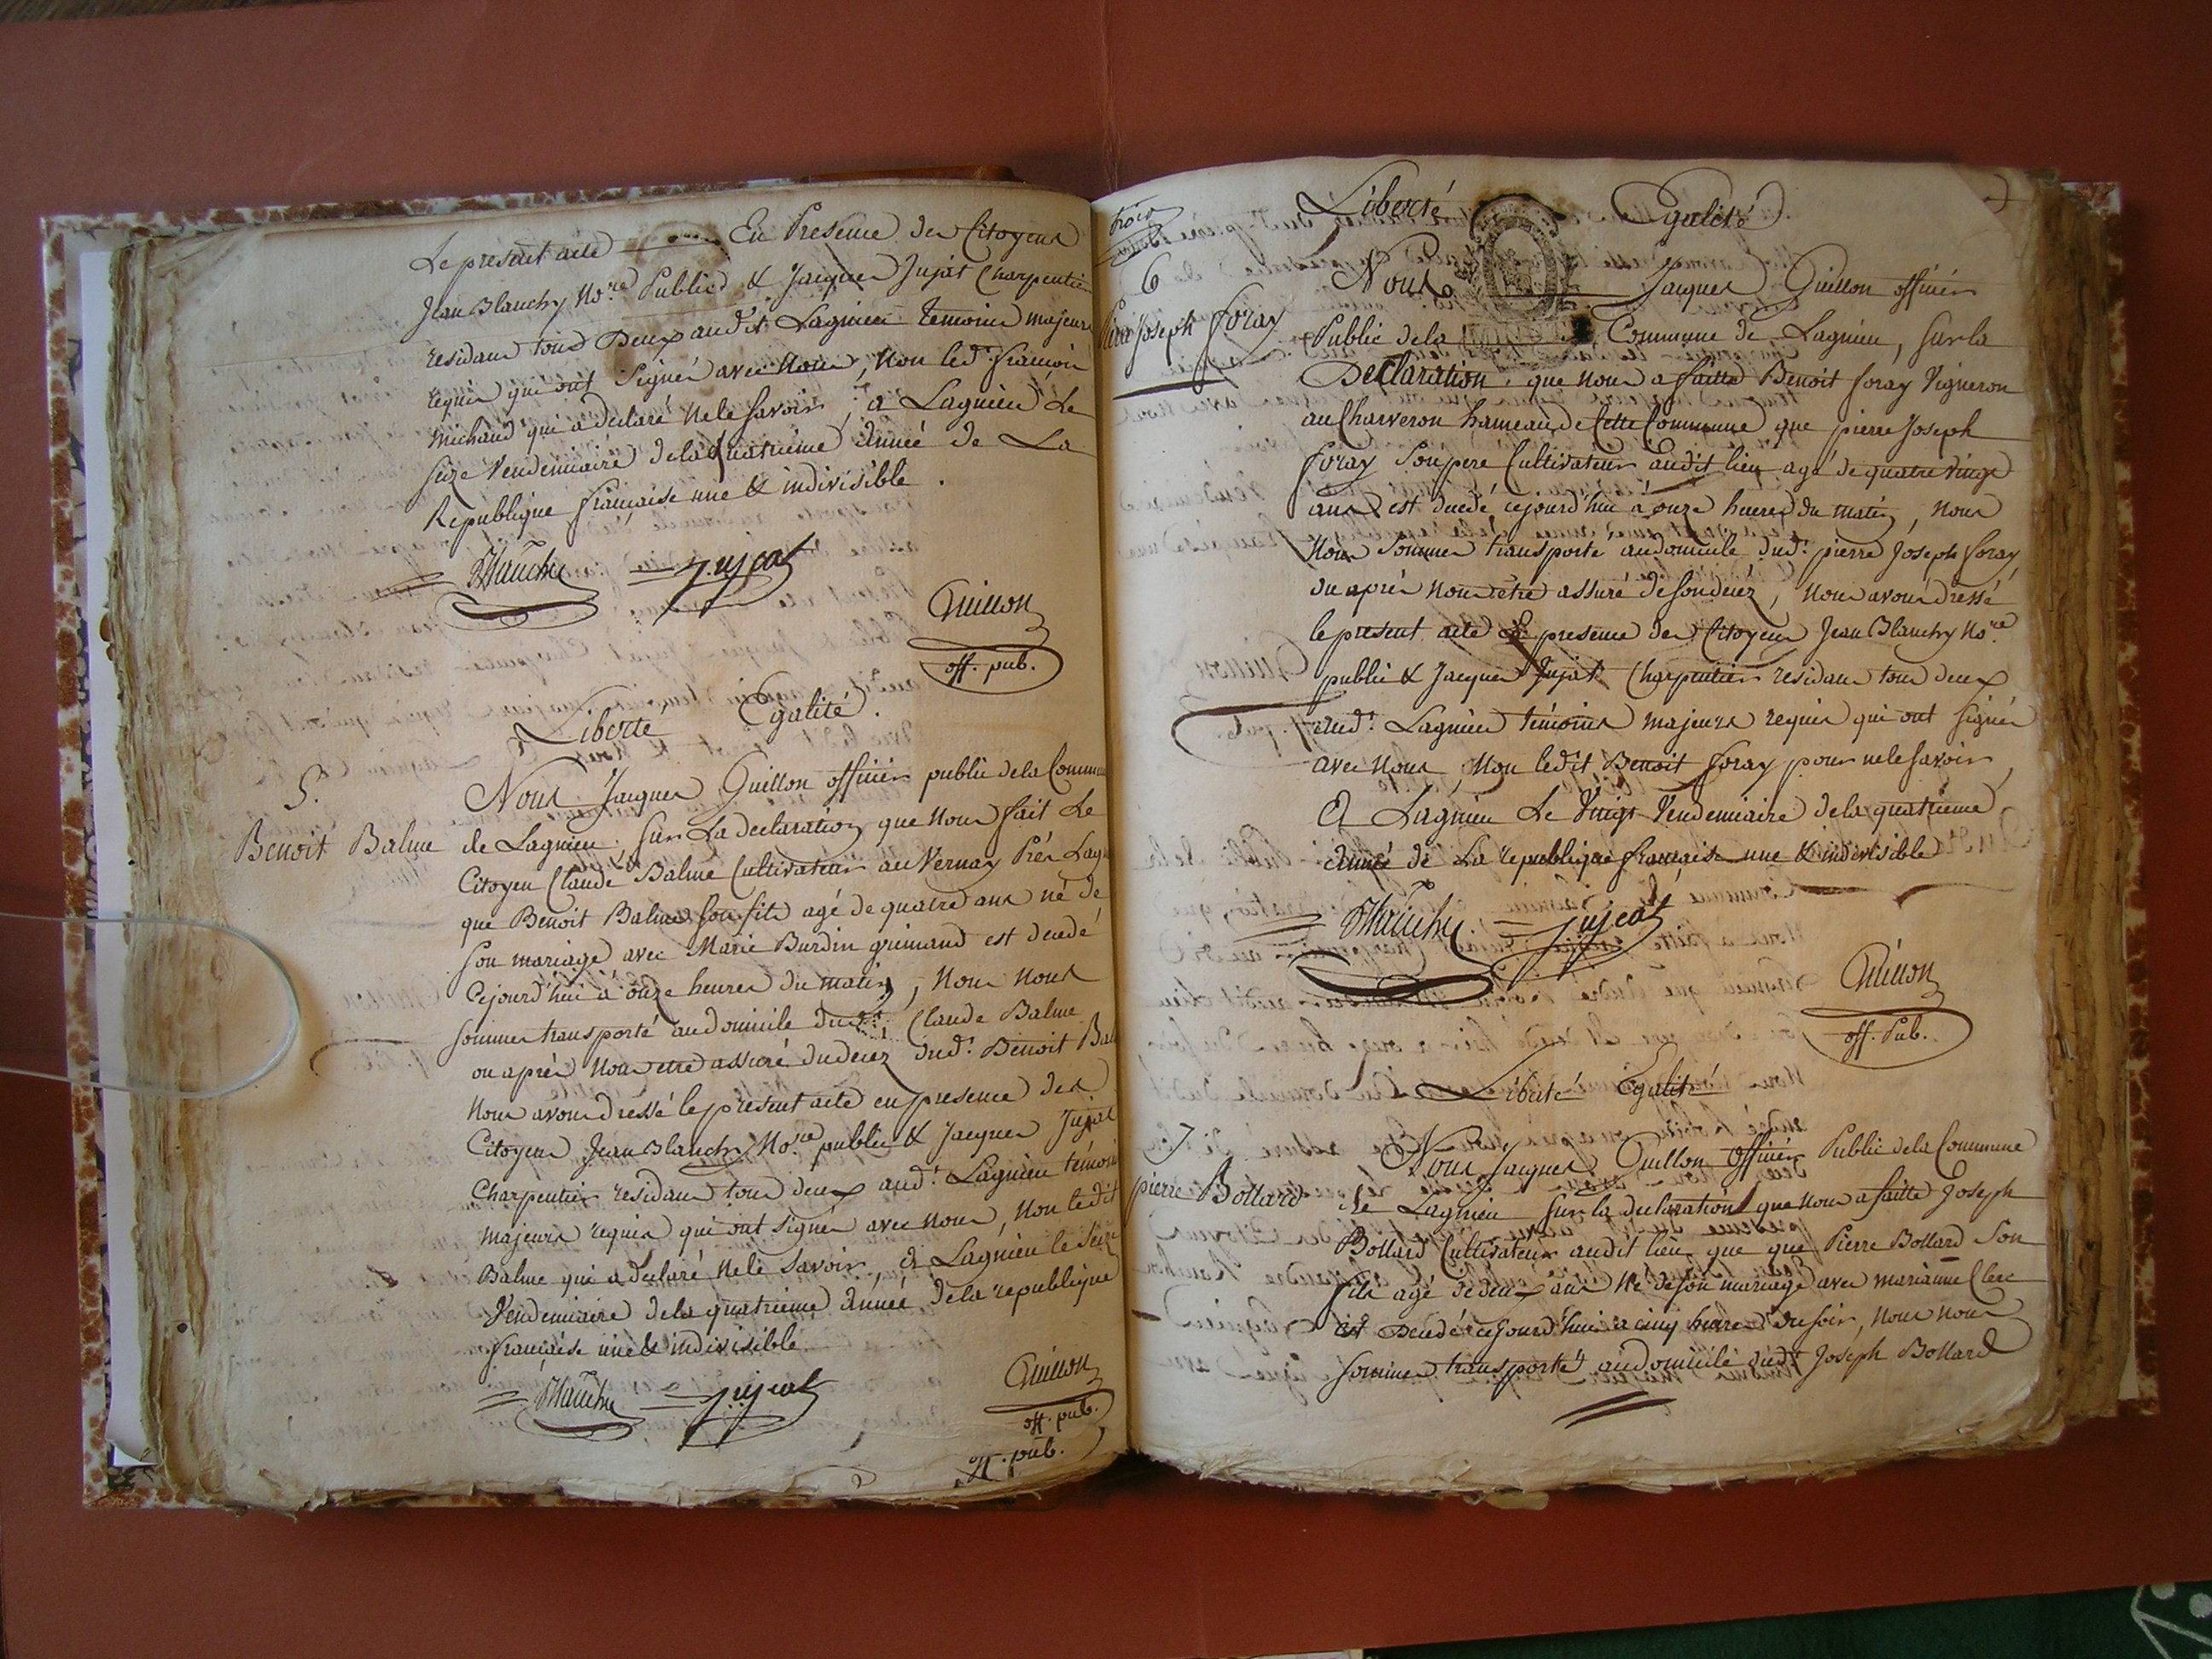 Le present acte En Presence des Citoyens
Jean Blanchy No.re Public & Jacques Jujat Charpentier
residans tous Deux audit Lagnieu temoins majeurs
requis qui ont signés avec Nous, Non led.t françois
michaud qui a declaré ne le savoir, a Lagnieu Le
seize Vendemiaire de la quatrieme Année de La
Republique française une & indivisible.
Blanchy J. Jujat
Guillon
off. pub.
Liberté Egalité.
5.
Benoit Balme
Nous Jacques Guillon officier public de la Commune
de Lagnieu, sur La declaration que Nous fait Le
Citoyen Claude Balme Cultivateur au Vernay Près Lag
que Benoit Balme son fils agé de quatre ans né de
son mariage avec Marie Burdin grimaud est decedé
Cejourd'hui à onze heures du matin, Nous Nous
sommes transporté au domicile dud.t Claude Balme
ou après Nous etre assuré du decez dud.t Benoit Bal
Nous avons dressé le present acte en presence des
Citoyens Jean Blanchy No.re public & Jacques Jujat
Charpentier residans tous deux aud.t Lagnieu temoins
majeurs requis qui ont signés avec nous, Non ledit
Balme qui a declaré ne le savoir, à Lagnieu le seize
Vendemiaire de la quatrieme Année de la republique
française une & indivisible.
Blanchy J. Jujat
Guillon
off. pub.
off. pub.
trois
Liberté Egalité
6
Pierre Joseph foray
Nous Jacques Guillon officier
Public de la Commune de Lagnieu, sur la
Declaration que Nous a faitte Benoit foray Vigneron
au Charveron hameau de Cette Commune que pierre Joseph
foray Son pere Cultivateur audit lieu agé de quatre vingt
ans est decedé cejourd'hui à onze heures du matin, Nous
Nous Sommes transporté au domicile dud.t pierre Joseph foray
ou après Nous etre assuré de son decez, Nous avons dressé
le present acte En presence des Citoyens Jean Blanchy No.re
public & Jacques Jujat Charpentier residans tous deux
aud.t Lagnieu temoins majeurs requis qui ont signés
avec Nous, Non ledit Benoit foray pour ne le savoir,
A Lagnieu Le Vingt Vendemiaire de la quatrieme
Année de La republique française une & indivisible
Blanchy J. Jujat
Guillon
off. Pub.
Liberté Egalité
7
pierre Bollard
Nous Jacques Guillon Officier Public de la Commune
de Lagnieu sur la declaration que Nous a faitte Joseph
Bollard Cultivateur audit lieu que que Pierre Bollard Son
fils agé de deux ans Né de son mariage avec marianne Clerc
est Decedé cejourd'hui a cinq heures du soir, Nous Nous
sommes transporté au domicile dud.t Joseph Bollard